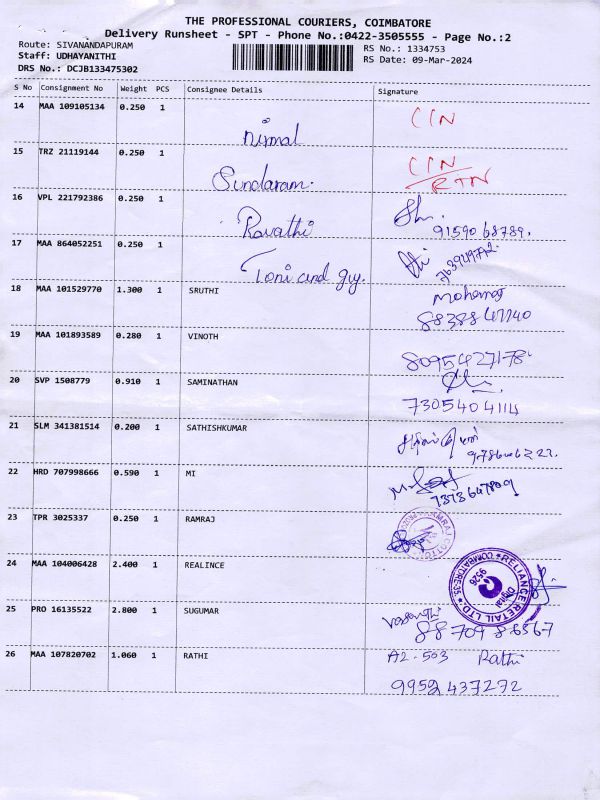 THE PROFESSIONAL COURIERS, COIMBATORE
Delivery Runsheet - SPT - Phone No.:0422-3505555 - Page No.:2
Route: SIVANANDAPURAM
Staff: UDHAYANITHI
DRS No.: DCJB133475302
RS No.: 1334753
RS Date: 09-Mar-2024
S No Consignment No Weight PCS Consignee Details Signature
14 MAA 109105134 0.250 1 Nirmal CIN
15 TRZ 21119144 0.250 1 Sundaram. CIN
RTN
16 VPL 221792386 0.250 1 Ravathi
9159068789.
17 MAA 864052251 0.250 1 Toni and guy.
18 MAA 101529770 1.300 1 SRUTHI
19 MAA 101893589 0.280 1 VINOTH 8095427178.
20 SVP 1508779 0.910 1 SAMINATHAN
7305404114
21 SLM 341381514 0.200 1 SATHISHKUMAR
22 HRD 707998666 0.590 1 MI
7373647809
23 TPR 3025337 0.250 1 RAMRAJ
24 MAA 104006428 2.400 1 REALINCE RELIANCE RETAIL LTD COIMBATORE-35
Digital
9326
25 PRO 16135522 2.800 1 SUGUMAR
88709 86567
26 MAA 107820702 1.060 1 RATHI A2-503 Rathi
9952437272